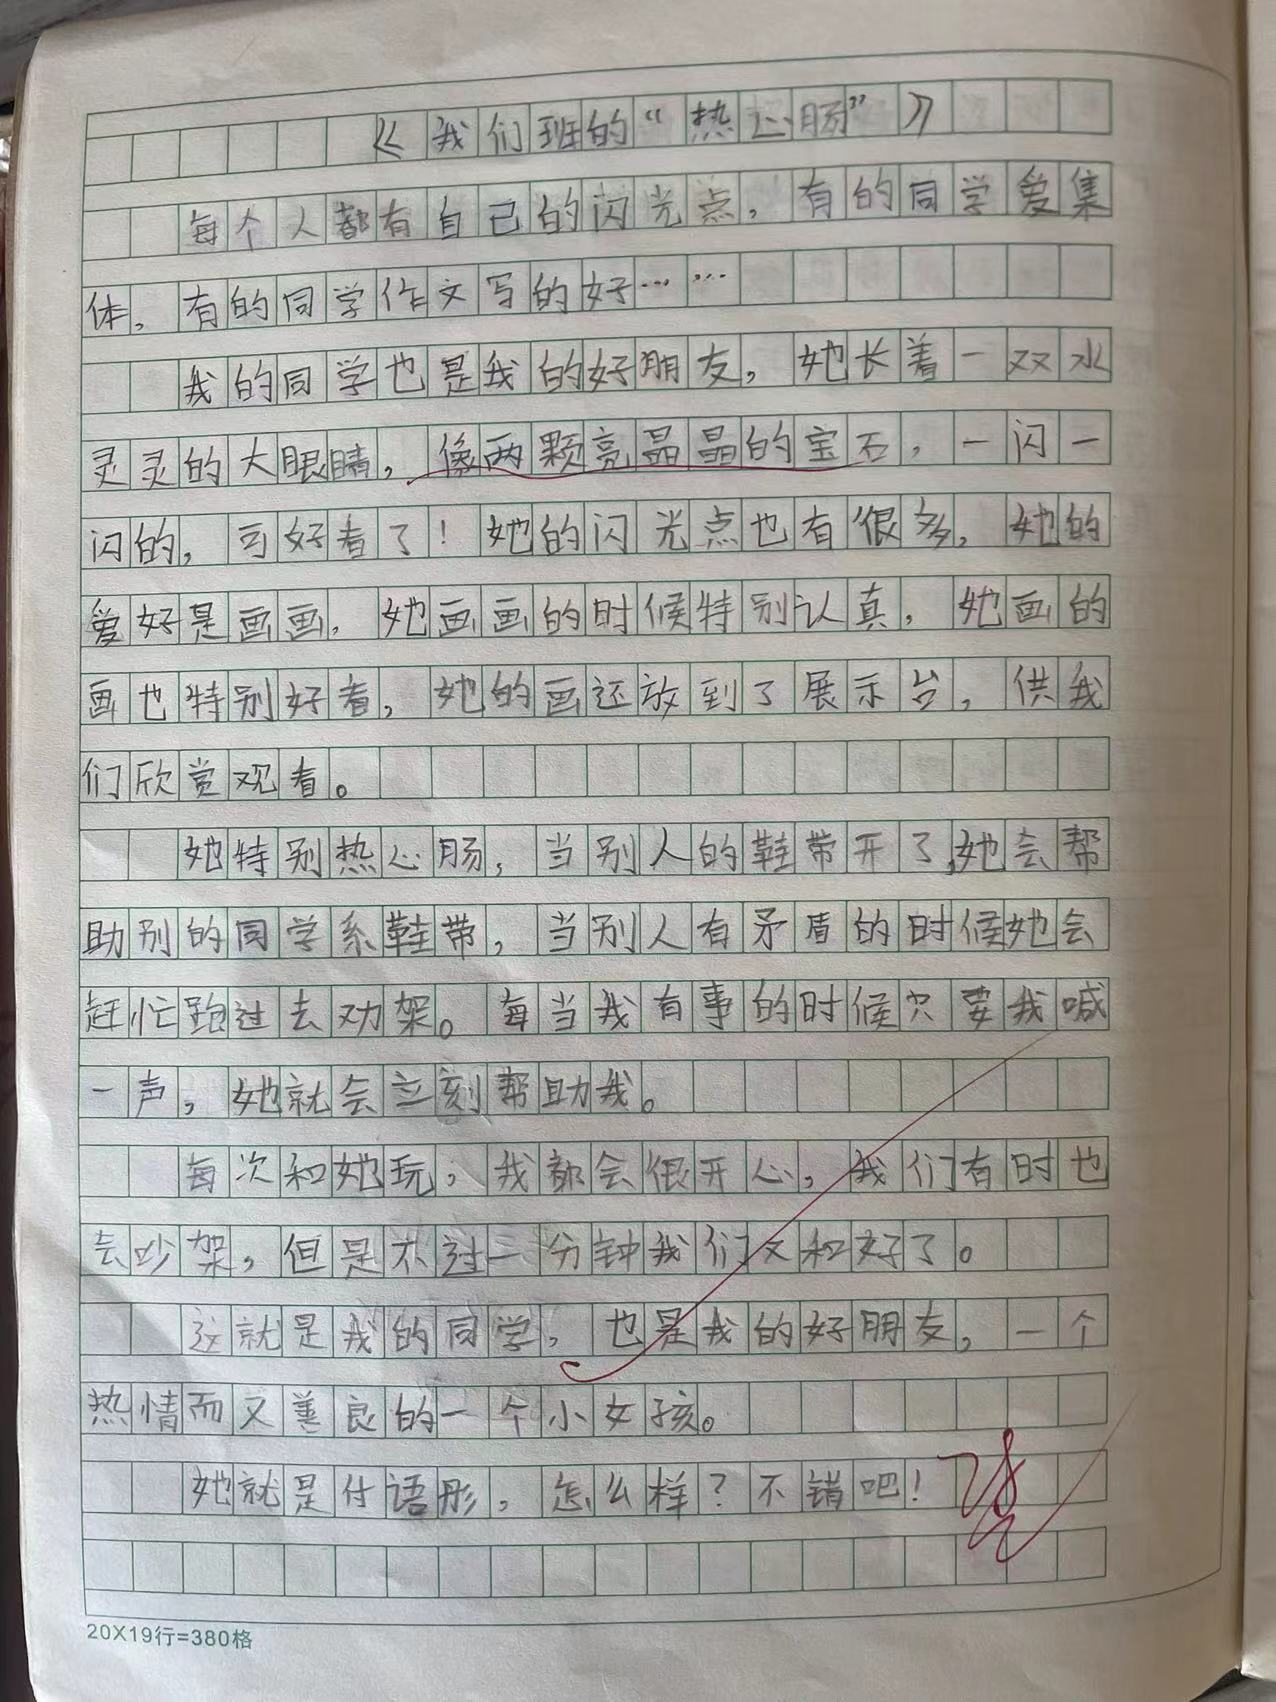 《我们班的“热心肠”》
每个人都有自己的闪光点，有的同学爱集
体，有的同学作文写的好……
我的同学也是我的好朋友，她长着一双水
灵灵的大眼睛，像两颗亮晶晶的宝石，一闪一
闪的，可好看了！她的闪光点也有很多，她的
爱好是画画，她画画的时候特别认真，她画的
画也特别好看，她的画还放到了展示台，供我
们欣赏观看。
她特别热心肠，当别人的鞋带开了，她会帮
助别的同学系鞋带，当别人有矛盾的时候她会
赶忙跑过去劝架。每当我有事的时候只要我喊
一声，她就会立刻帮助我。
每次和她玩，我都会很开心，我们有时也
会吵架，但是不过三分钟我们又和好了。
这就是我的同学，也是我的好朋友，一个
热情而又善良的一个小女孩。
她就是付语彤，怎么样？不错吧！
20X19行=380格